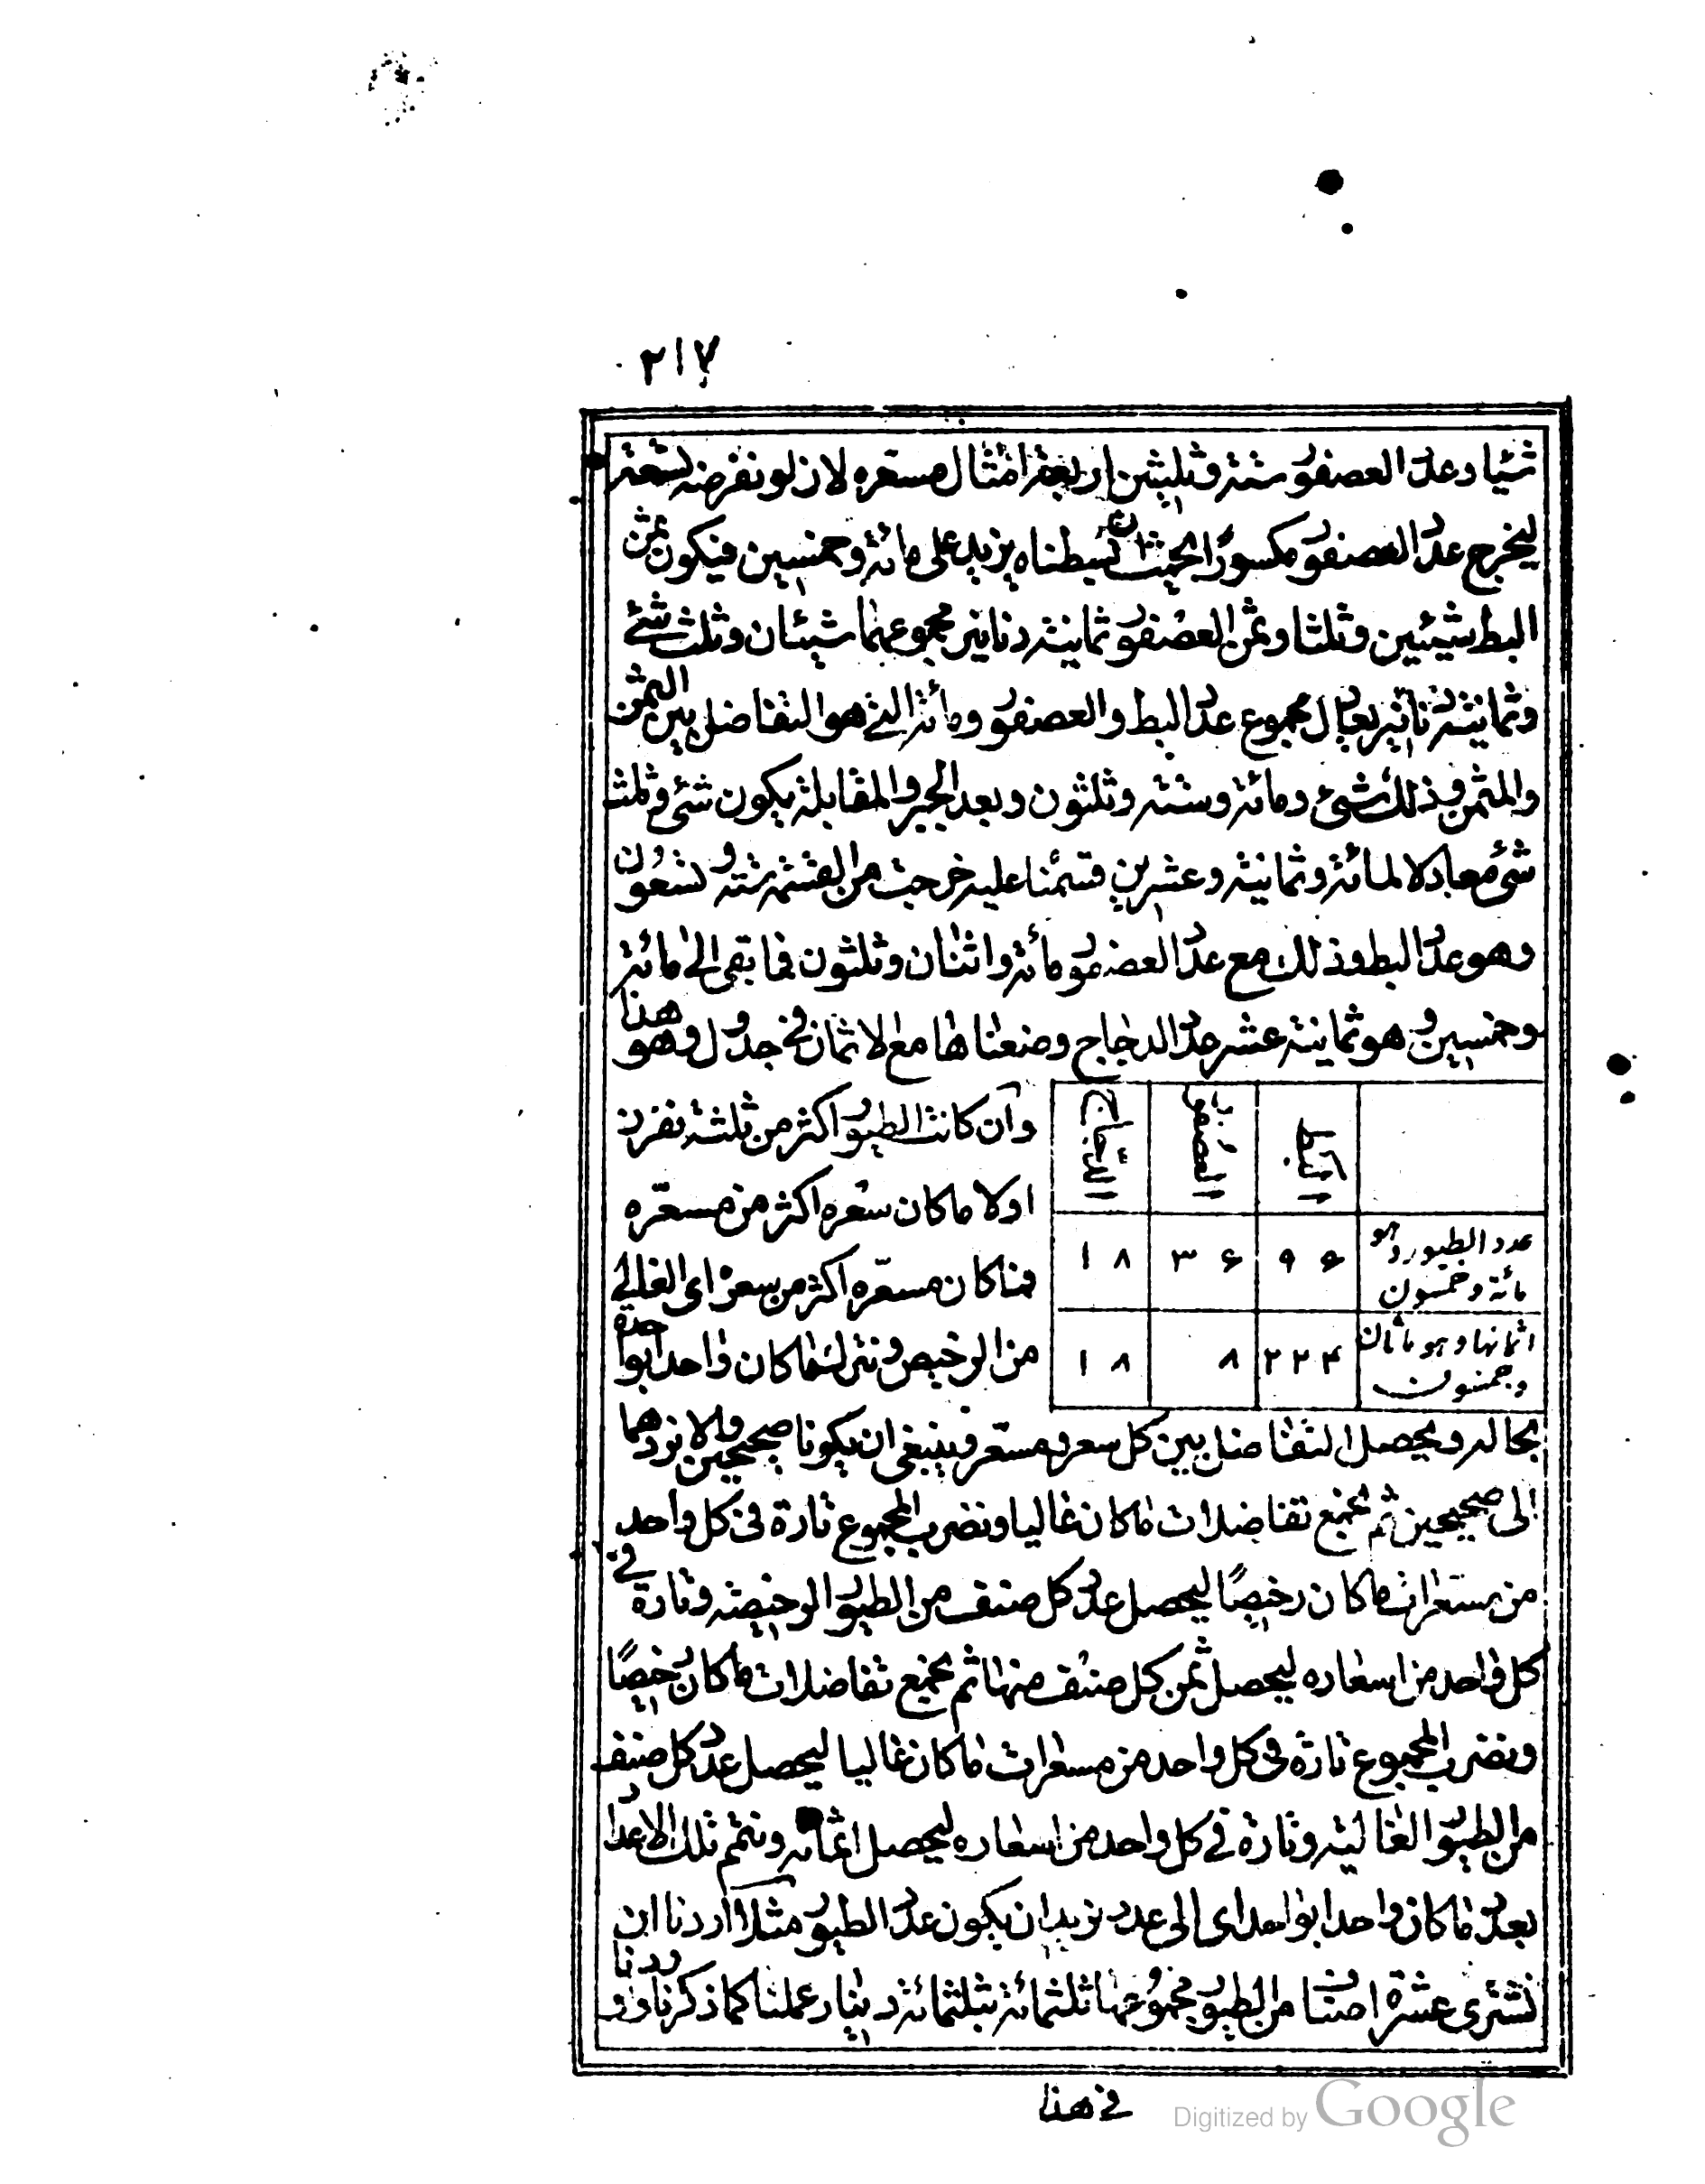 ٢١٧
شيئا وعدد العصفور ستة وثلثين اربعة امثال مسعره لانه لو نفرضه تسعة
ليخرج عدد العصفور مكسورا بحيث ان بسطناه يزيد على مائة وخمسين فيكون ثمن
البط شيئين وثلثا وثمن العصفور ثمانية دنانير مجموعهما شيئان وثلث شئ
وثمانية دنانير يعادل مجموع عدد البط والعصفور ومائة التي هو التفاضل بين الثمن
والمثمن وذلك شئ ومائة وستة وثلثون وبعد الجبر والمقابلة يكون شئ وثلث
شئ معادلا لمائة وثمانية وعشرين قسمنا عليه خرجت من القسمة ستة وتسعون
وهو عدد البط وذلك مع عدد العصفور مائة واثنان وثلثون فما بقى الى مائة
وخمسين وهو ثمانية عشر عدد الدجاج وضعناها مع الاثمان في جدول وهو هذا
البط العصفور الدجاج
عدد الطيور وهو مائة وخمسون ٩٦ ٣٦ ١٨
اثمانها وهو مائتان وخمسون ٢٢٤ ٨ ١٨
وان كانت الطيور اكثر من ثلثة نفرز
اولا ما كان سعره اكثر من مسعره
مما كان مسعره اكثر من سعره اى الغالي
من الرخيص ونترك ما كان واحدا بواحدة
بحاله ويحصل التفاضل بين كل سعر ومسعر وينبغى ان يكونا صحيحين والا نردهما
الى صحيحين ثم نجمع تفاضلات ما كان غاليا ونضرب المجموع تارة في كل واحد
من مسعرات ما كان رخيصا ليحصل عدد كل صنف من الطيور الرخيصة وتارة في
كل واحد من اسعاره ليحصل ثمن كل صنف منها ثم نجمع تفاضلات ما كان رخيصا
ونضرب المجموع تارة في كل واحد من مسعرات ما كان غاليا ليحصل عدد كل صنف
من الطيور الغالية وتارة في كل واحد من اسعاره ليحصل اثمانه ونتمم تلك الاعداد
بعدد ما كان واحدا بواحد اى الى عدد نريد ان يكون عدد الطيور مثلا اردنا ان
نشترى عشرة اصناف من الطيور مجموعها ثلثمائة بثلثمائة دينار عملنا كما ذكرنا واوردنا
في هذا
Digitized by Google